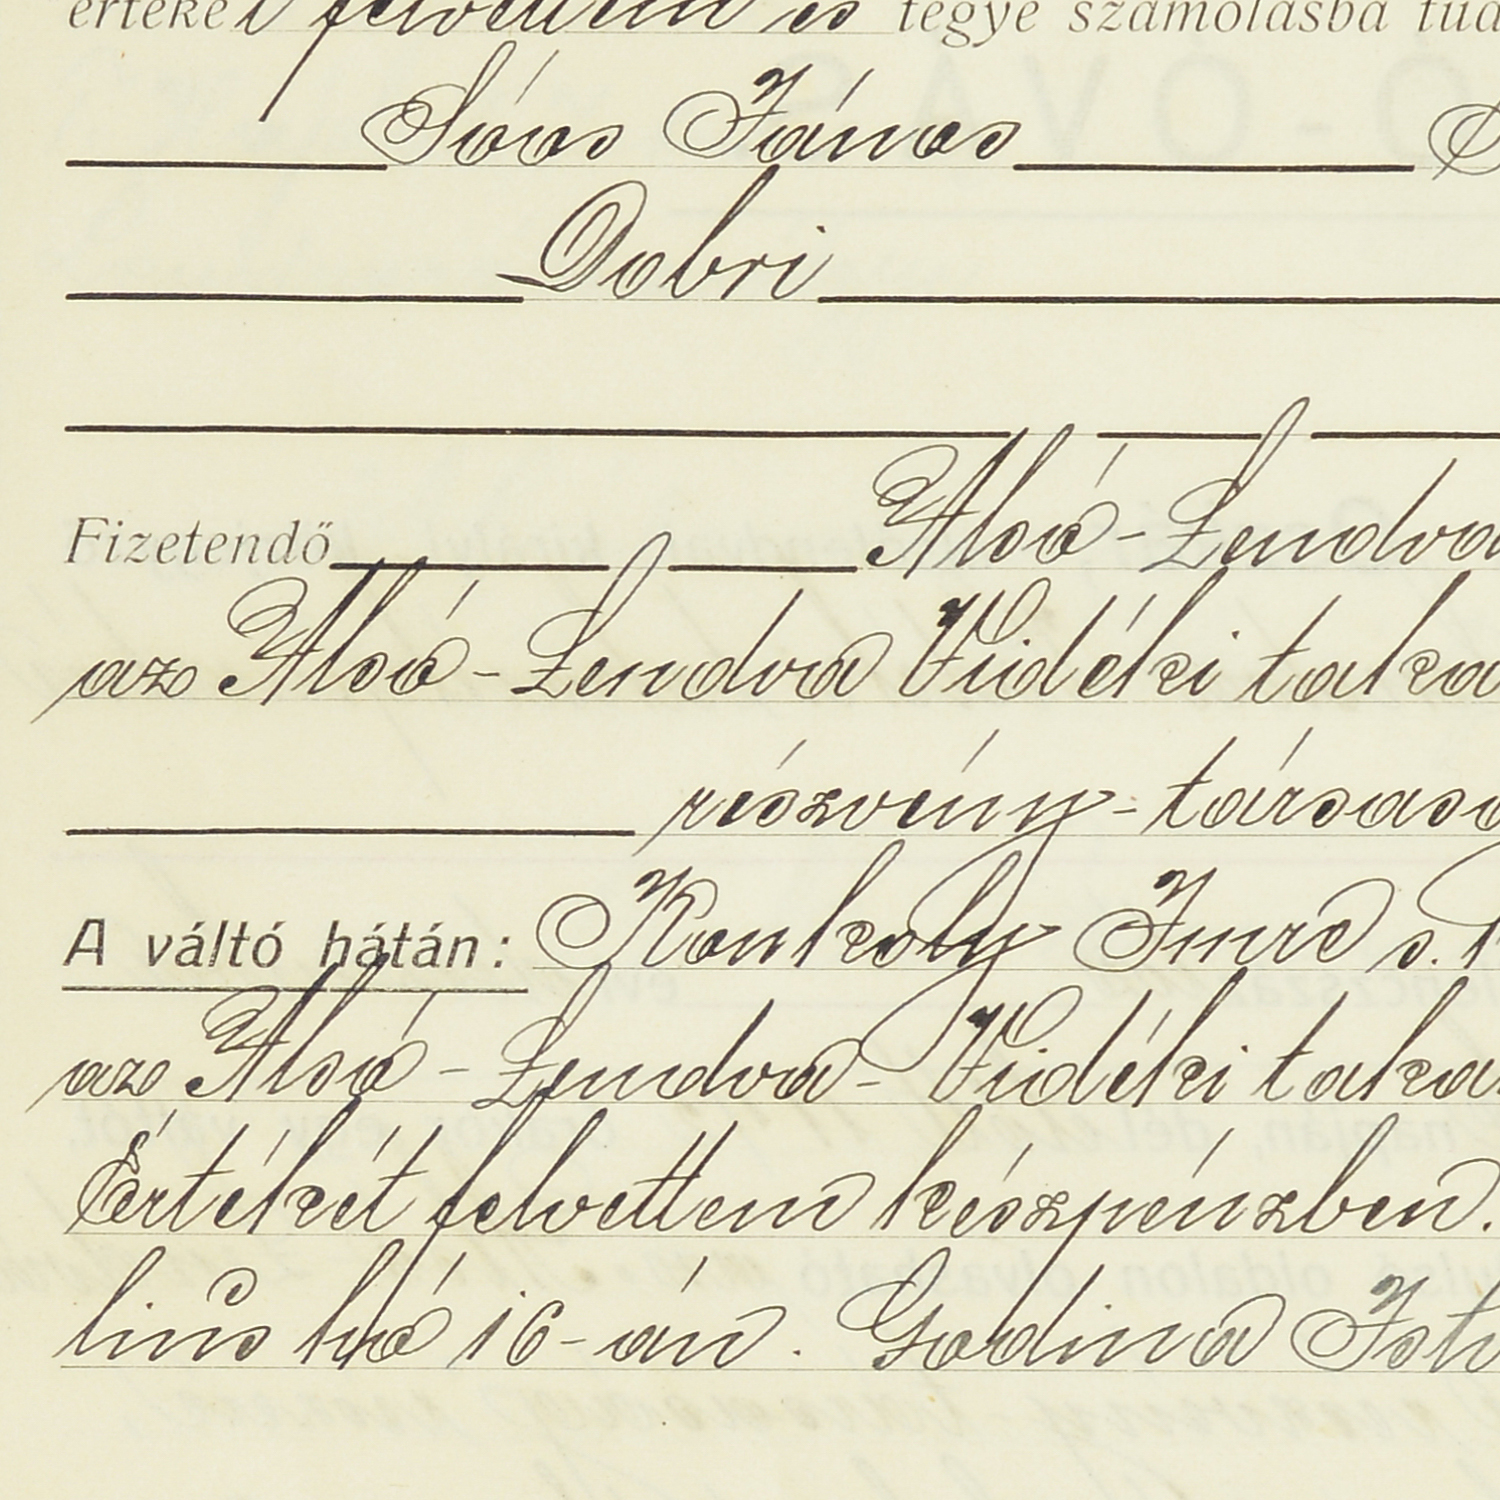 értékét felvettem és tegye számolásba
Sóos János
Dobri
Fizetendő Alsó-Lendva
az Alsó-Lendva Vidéki taka
részvény-társasá
A váltó hátán: Konkoly Imre s. k
az Alsó-Lendva-Vidéki taka
Értékét felvettem készpénzben.
lius hó 16-án. Godina Istv